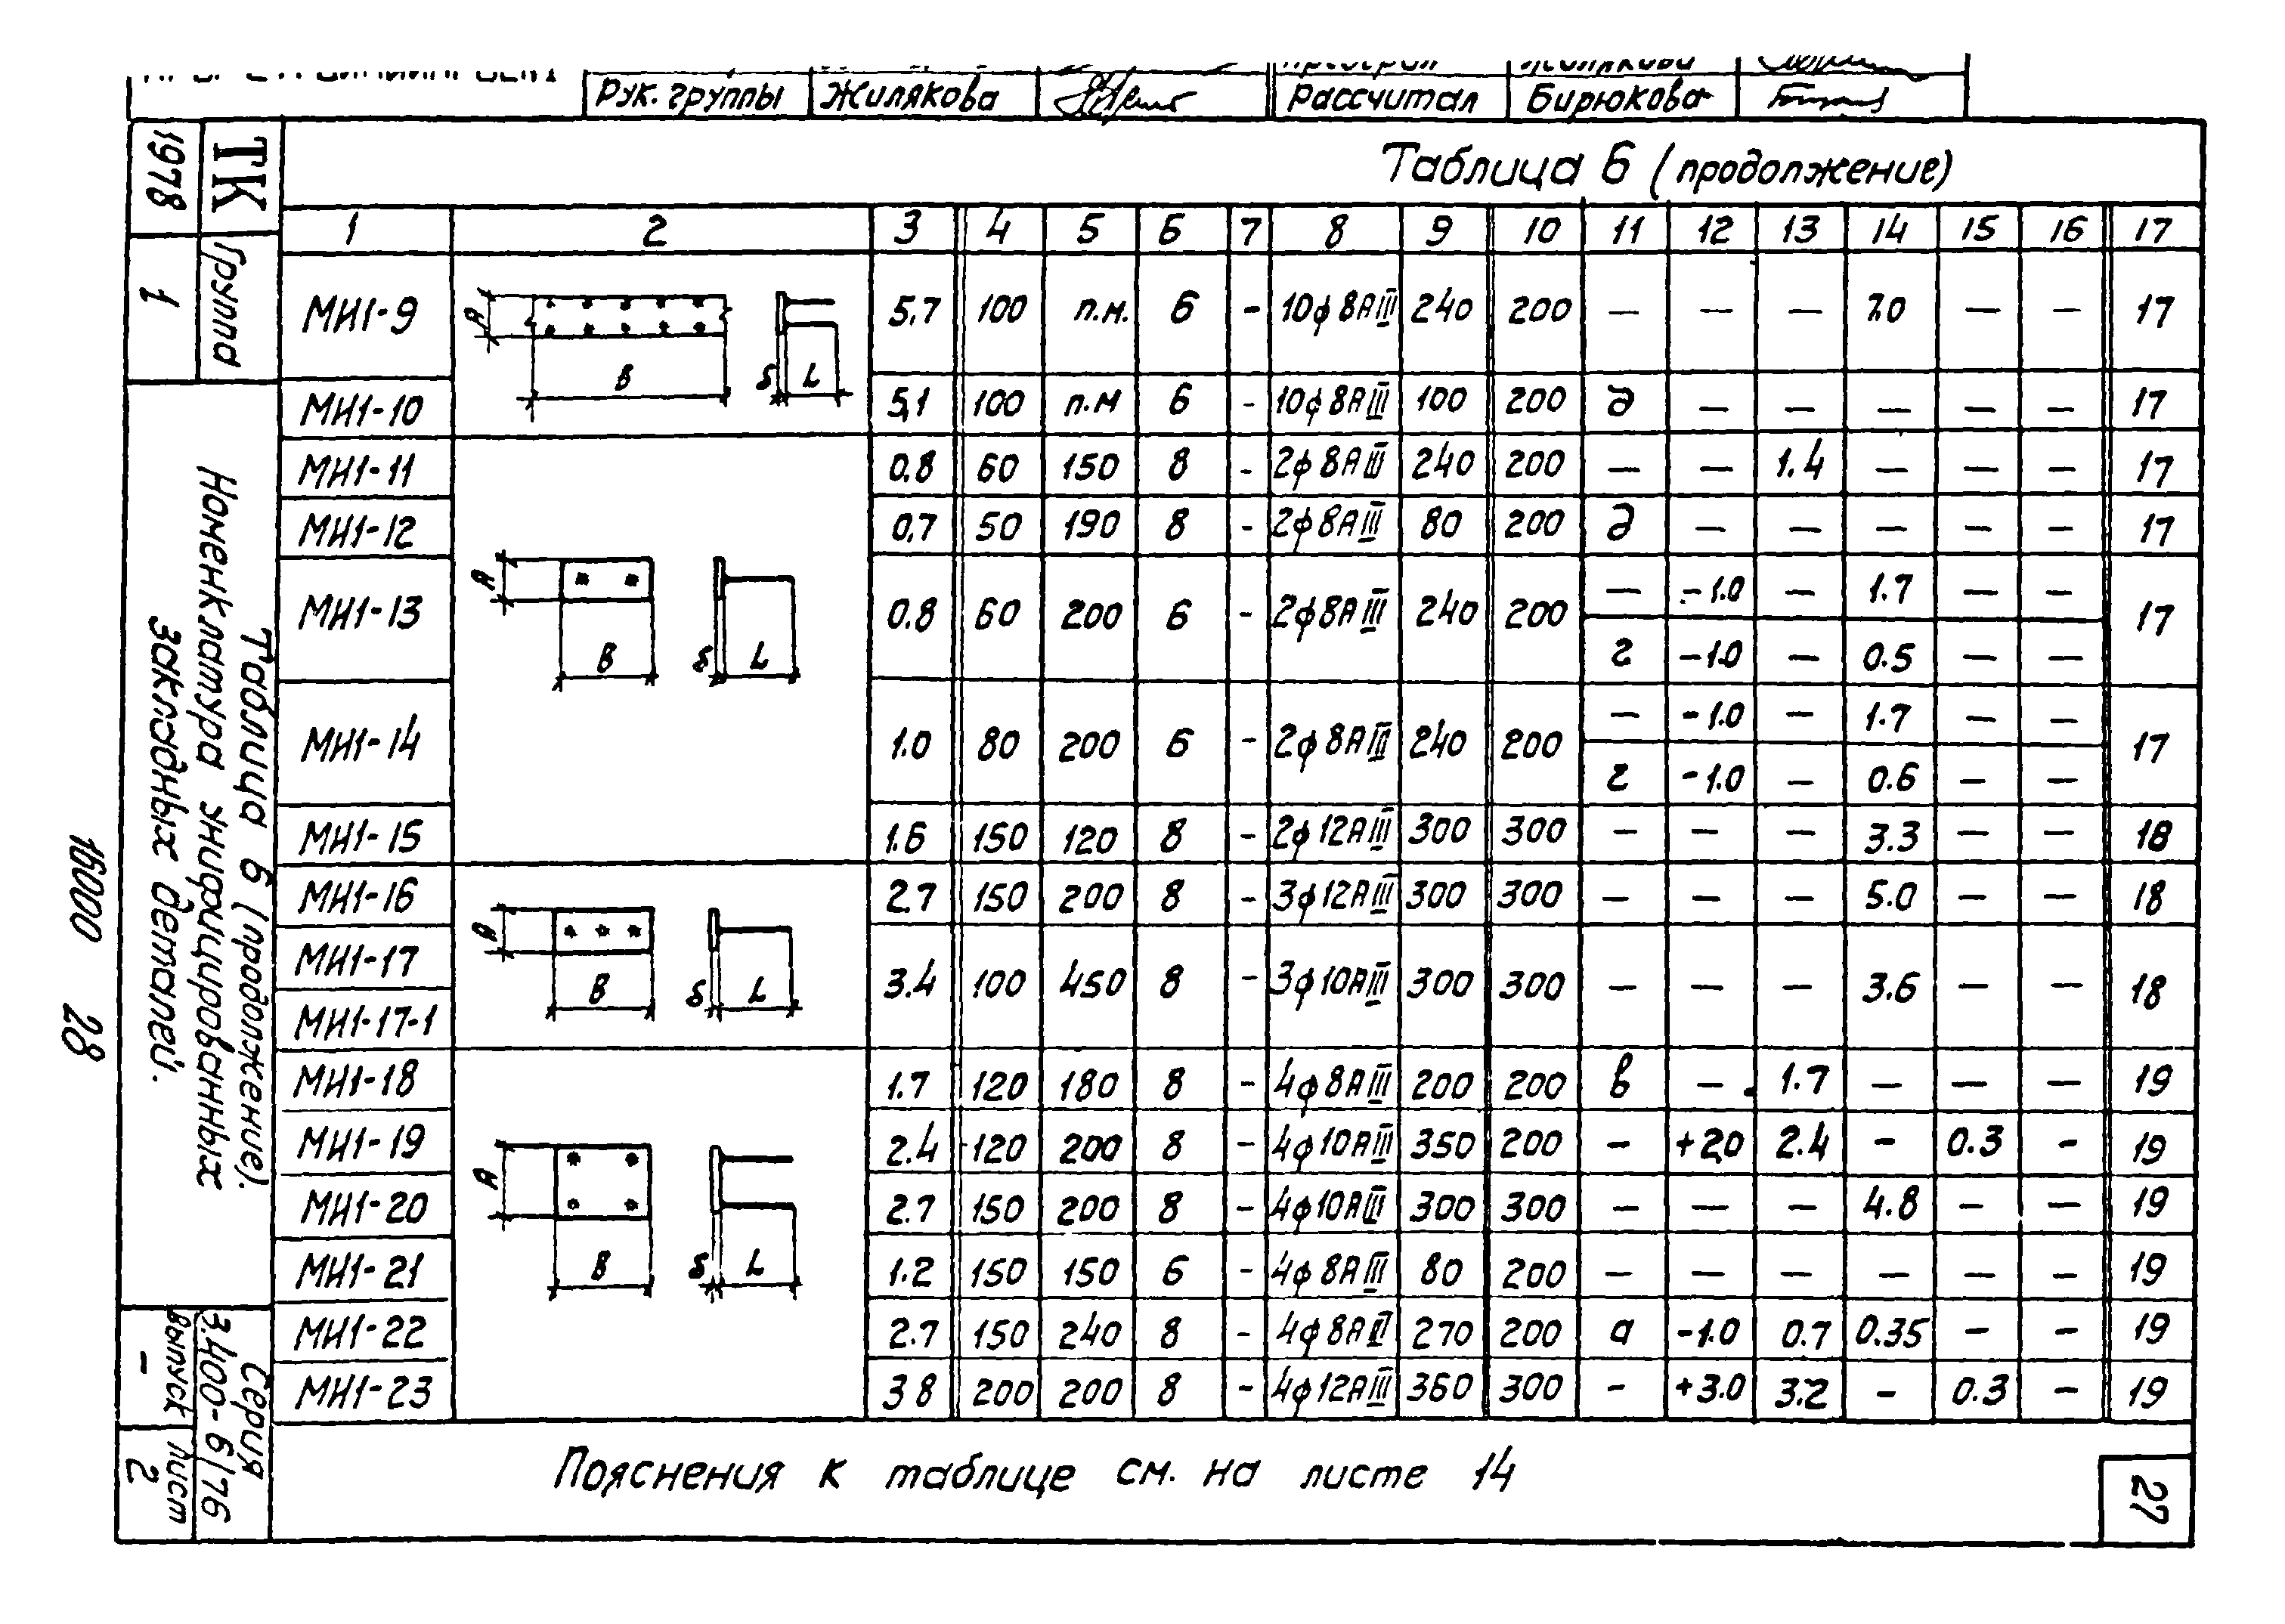 Рук. группы Жилякова Рассчитал Бирюкова
Таблица 6 (продолжение)
1 2 3 4 5 6 7 8 9 10 11 12 13 14 15 16 17
МИ1-9 5,7 100 п.м. 6 - 10ф8АIII 240 200 — — — 7.0 — — 17
МИ1-10 5,1 100 п.м 6 - 10ф8АIII 100 200 д — — — — — 17
МИ1-11 0.8 60 150 8 - 2ф8АIII 240 200 — — 1.4 — — — 17
МИ1-12 0,7 50 190 8 - 2ф8АIII 80 200 д — — — — — 17
МИ1-13 0.8 60 200 6 - 2ф8АIII 240 200 — -1.0 — 1.7 — — 17
г -1.0 — 0.5 — —
МИ1-14 1.0 80 200 6 - 2ф8АIII 240 200 — -1.0 — 1.7 — — 17
г -1.0 — 0.6 — —
МИ1-15 1.6 150 120 8 - 2ф12АIII 300 300 — — — 3.3 — — 18
МИ1-16 2.7 150 200 8 - 3ф12АIII 300 300 — — — 5.0 — — 18
МИ1-17 3.4 100 450 8 - 3ф10АIII 300 300 — — — 3.6 — — 18
МИ1-17-1
МИ1-18 1.7 120 180 8 - 4ф8АIII 200 200 в — 1.7 — — — 19
МИ1-19 2.4 120 200 8 - 4ф10АIII 350 200 - +2,0 2.4 - 0.3 - 19
МИ1-20 2.7 150 200 8 - 4ф10АIII 300 300 — — — 4.8 — — 19
МИ1-21 1.2 150 150 6 - 4ф8АIII 80 200 — — — — — — 19
МИ1-22 2.7 150 240 8 - 4ф8АIII 270 200 а -1.0 0.7 0.35 — - 19
МИ1-23 3 8 200 200 8 - 4ф12АIII 360 300 - +3.0 3.2 - 0.3 - 19
А В δ L
А В δ L
А В δ L
А В δ L
Пояснения к таблице см. на листе 14
27
ТК
1978
Группа
1
Таблица 6 (продолжение).
Номенклатура унифицированных
закладных деталей.
Серия
3.400-6/76
Выпуск
-
Лист
2
16000 28